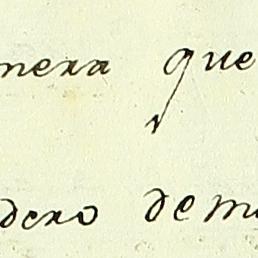 nera que
dero dema